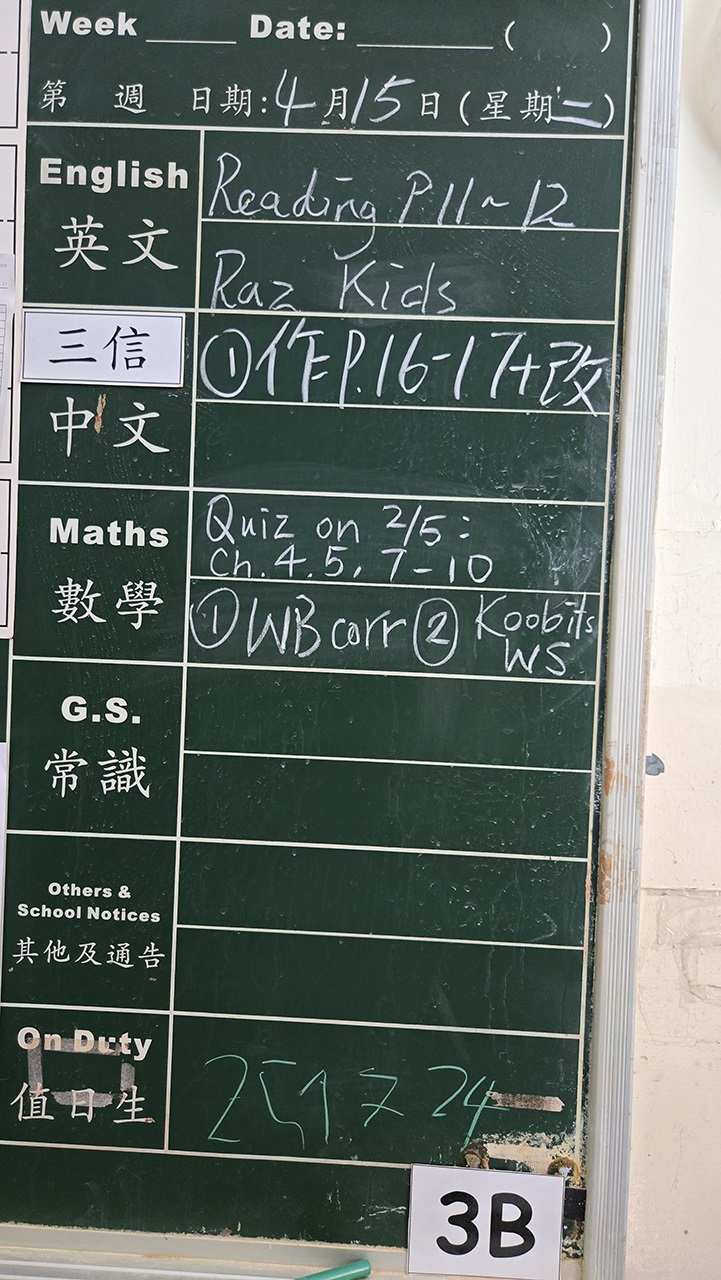 Week ____ Date: ______ ( )
第 週 日期:4月15日(星期二)
English
英文
Reading P.11~12
Raz Kids
三信
中文
①作P.16-17+改
Maths
數學
Quiz on 2/5:
Ch. 4. 5, 7-10
①WB corr ② Koobits
WS
G.S.
常識
Others &
School Notices
其他及通告
On Duty
值日生
24
3B